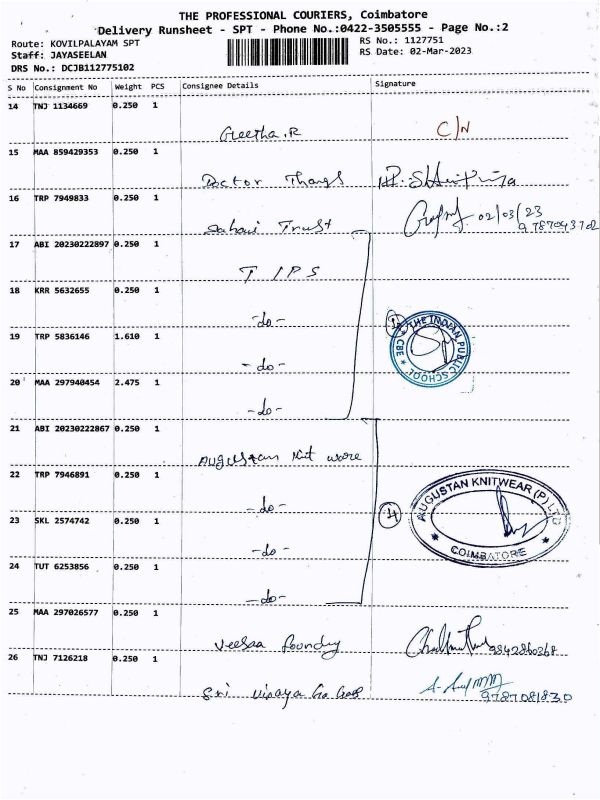 THE PROFESSIONAL COURIERS, Coimbatore
Delivery Runsheet - SPT - Phone No.:0422-3505555 - Page No.:2
Route: KOVILPALAYAM SPT
Staff: JAYASEELAN
DRS No.: DCJB112775102
RS No.: 1127751
RS Date: 02-Mar-2023
S No Consignment No Weight PCS Consignee Details Signature
14 TNJ 1134669 0.250 1
Geetha.R C/N
15 MAA 859429353 0.250 1
Doctor Thangs
16 TRP 7949833 0.250 1
Sahavi Trust 02/03/23
9787043702
17 ABI 20230222897 0.250 1
T IPS
18 KRR 5632655 0.250 1
-do-
19 TRP 5836146 1.610 1
-do-
THE INDIAN PUBLIC SCHOOL * CBE *
20 MAA 297940454 2.475 1
-do-
21 ABI 20230222867 0.250 1
Augustan Knit ware
22 TRP 7946891 0.250 1
-do-
4
AUGUSTAN KNITWEAR (P) LTD
* COIMBATORE *
23 SKL 2574742 0.250 1
-do-
24 TUT 6253856 0.250 1
-do-
25 MAA 297026577 0.250 1
Veesaa foundry 9842860368
26 TNJ 7126218 0.250 1
Sri Vijaya 9787081830